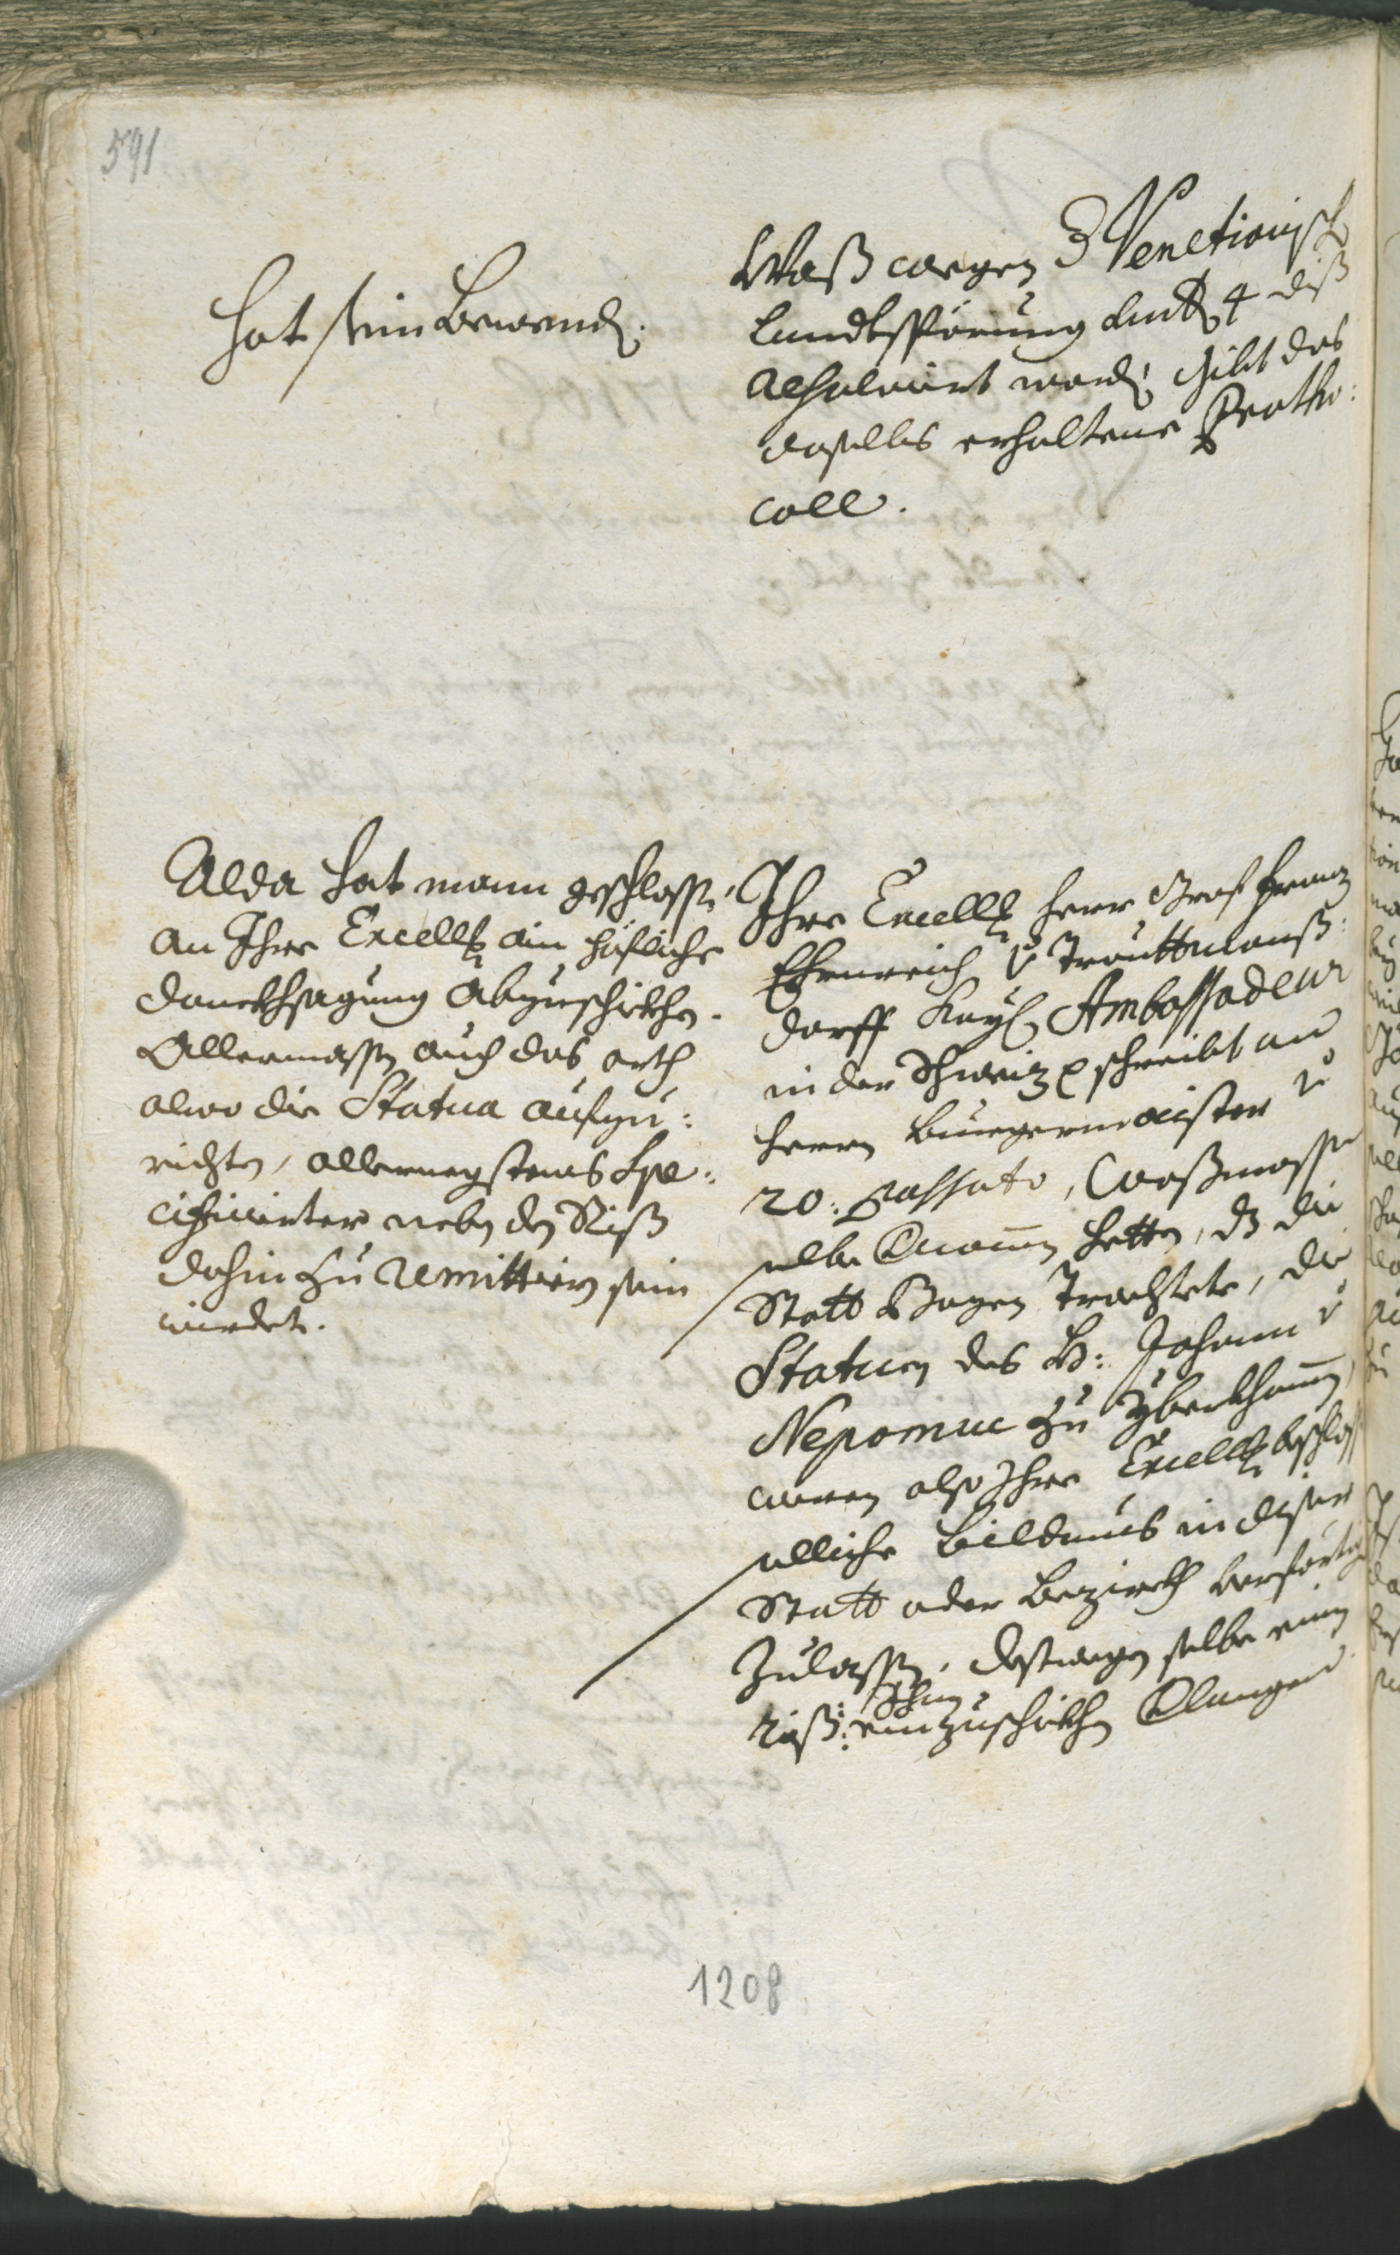 591
Hat sein Bewend.
Waß wegen Venetionisch
Landtsspörung den 4 diß
resolviert word, gibt das
daselbs erhaltene Protho:
coll.
Alda hat mann geschlossen,
an Ihre Excellz ain höfliche
danckhsagung abzuschickhen.
Allermassen auch das orth
alwo die Statua aufzu:
richten, allernegstens spe:
cificierter neben den Riß
dahin zu remittiern sein
würdet.
Ihre Excellz Herr Graf Franz
Ehrnreich v Trauttmanß:
dorff Kayl Ambassadeur
in der Schweiz schreibt an
Herrn Burgermaister v
20: passato, waßmassen
selbe vernomen hetten, dz die
Statt Bozen trachtete, die
Statuen des H: Johann v
Nepomuc zu yberkhomen,
waren also Ihre Excellz beschloss
solliche Bildnus in diser
Statt oder Bezirckh verfertig
zulassen, destwegen selbe einen
riß: einzuschickhen verlangen
1208